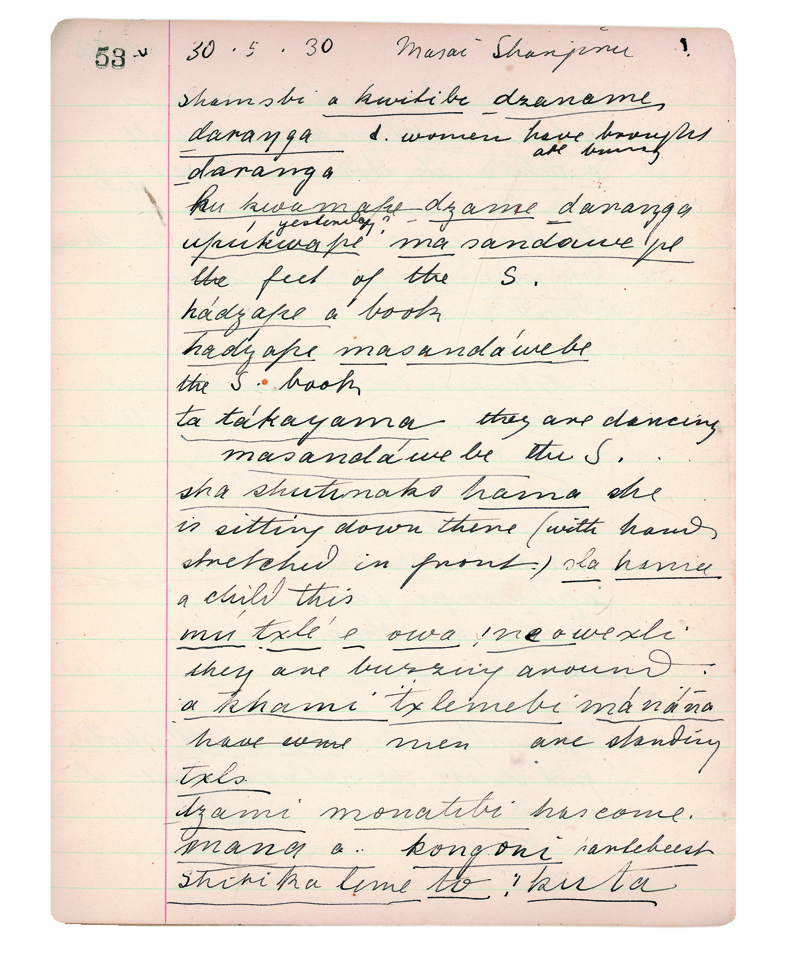 53 v 30 . 5 . 30 Masai Shanjinu 1.
shamsbi a kwitibi dzaname
daranga d. women have brought
are buring
daranga
ku kwamape dzame daranga
yesterday?
upúkwape ma sandawe pe
the feet of the S.
hádzape a book
hadzape masandáwebe
the S. book
ta tákayama they are dancing
masandáwebe the S.
sha shutinako hama she
is sitting down there (with hands
stretched in front.) sla hamee
a child this
mú txlé e owa !ncowexli
they are buzzing around.
a khami txlemebi mánána
have come men are standing
txls
dzami monatibi has come.
mana a.. kongoni hartebeest
shibika leme to !kuta